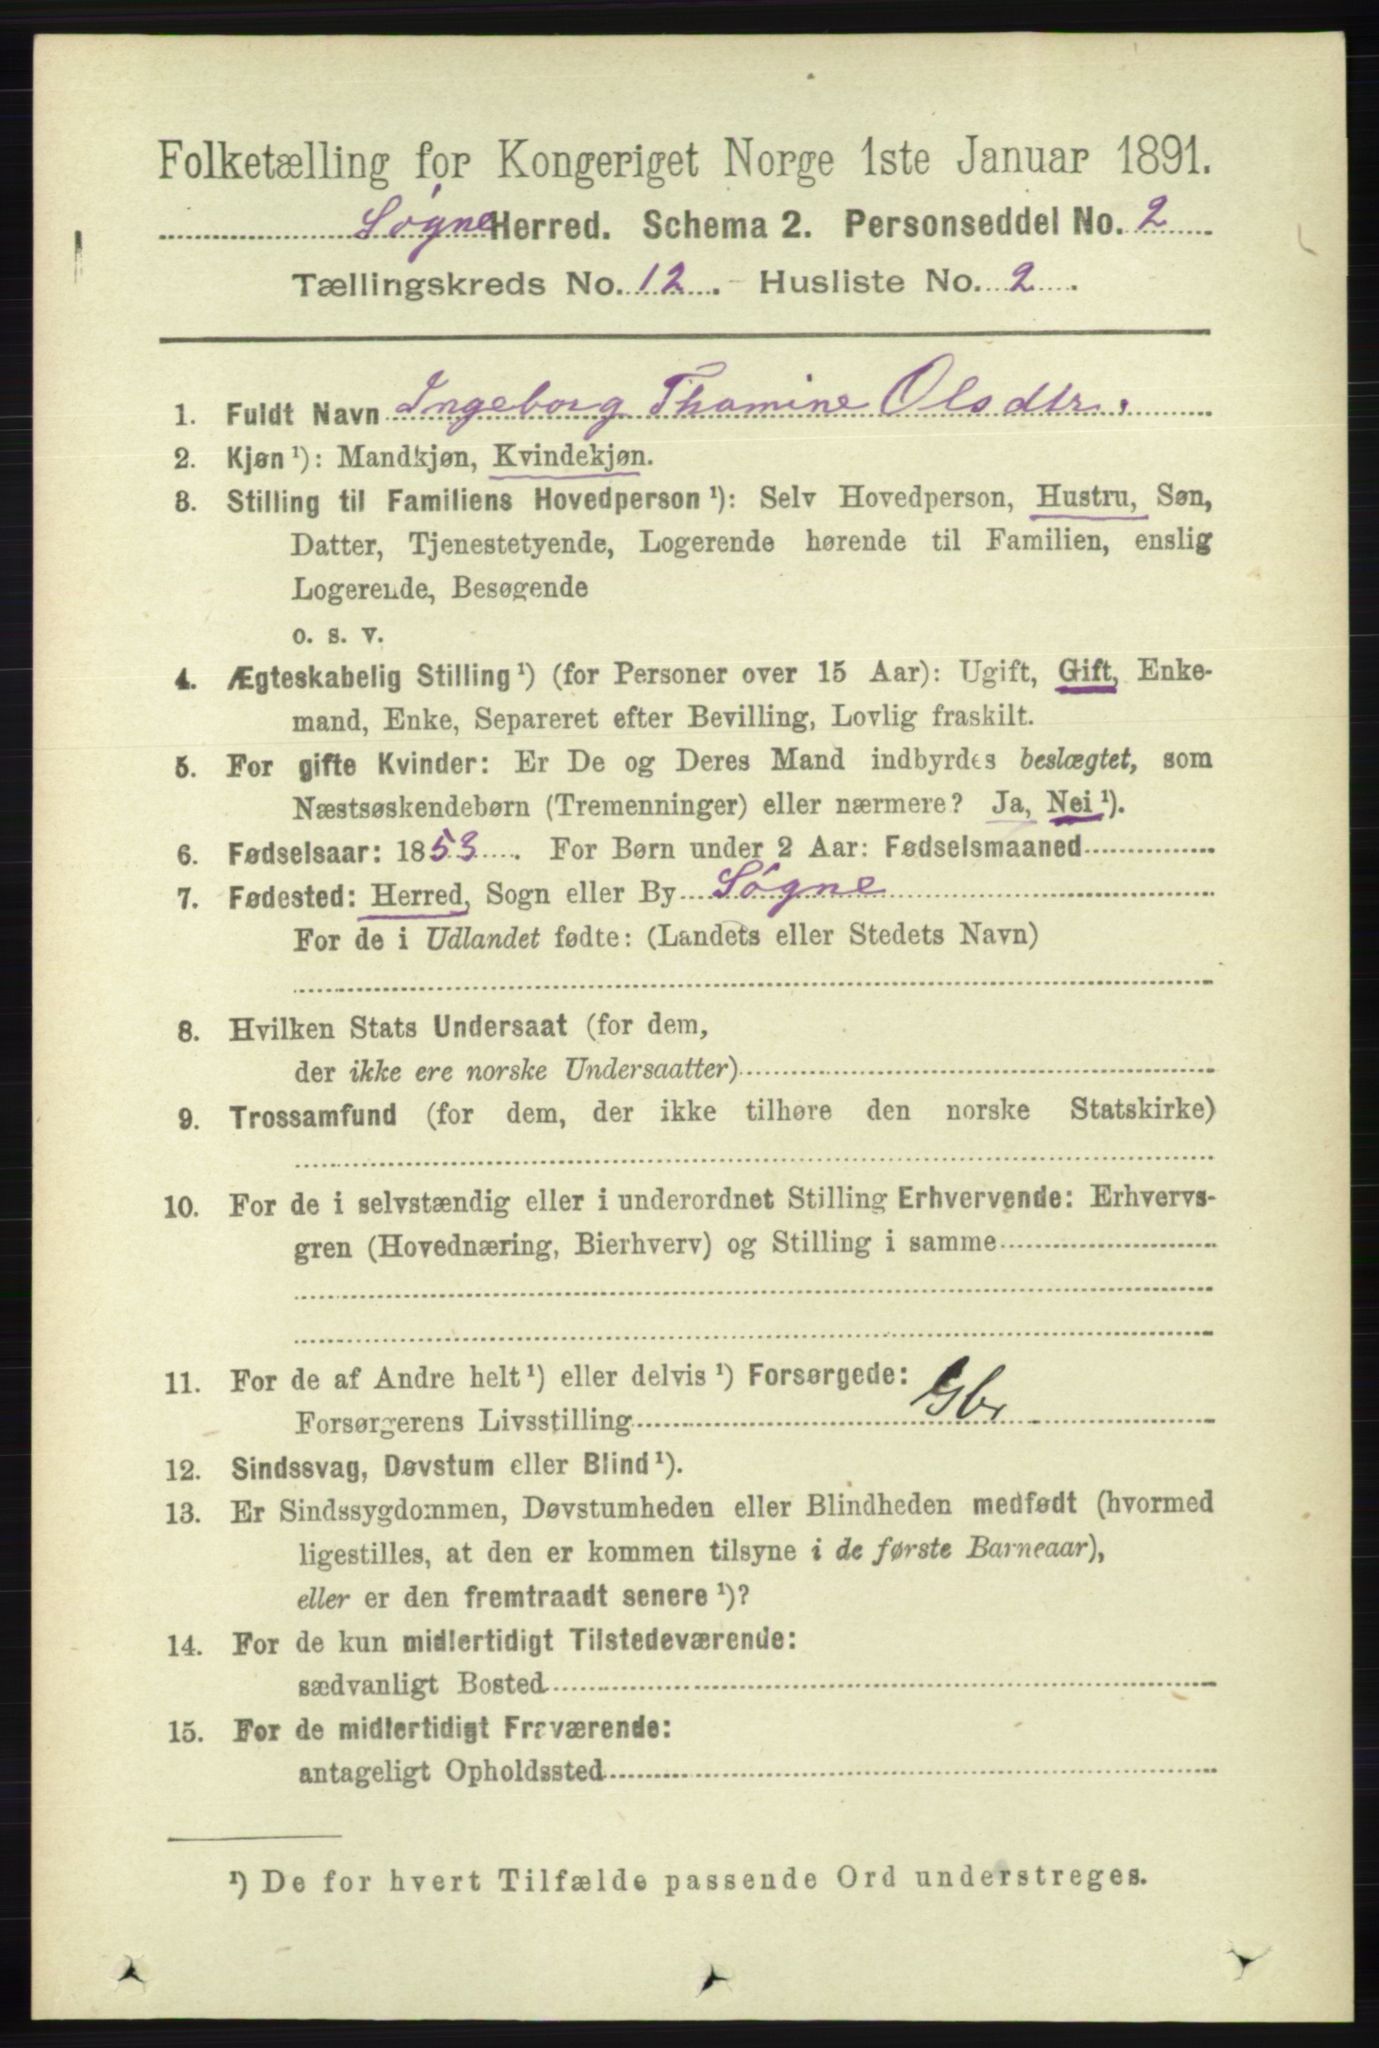 Folketælling for Kongeriget Norge 1ste Januar 1891.
Søgne Herred. Schema 2. Personseddel No. 2
Tællingskreds No. 12. - Husliste No. 2.
1. Fuldt Navn Ingeborg Thomine Olsdtr.
2. Kjøn ¹): Mandkjøn, Kvindekjøn.
3. Stilling til Familiens Hovedperson ¹): Selv Hovedperson, Hustru, Søn,
Datter, Tjenestetyende, Logerende hørende til Familien, enslig
Logerende, Besøgende
o. s. v.
4. Ægteskabelig Stilling ¹) (for Personer over 15 Aar): Ugift, Gift, Enke-
mand, Enke, Separeret efter Bevilling, Lovlig fraskilt.
5. For gifte Kvinder: Er De og Deres Mand indbyrdes beslægtet, som
Næstsøskendebørn (Tremenninger) eller nærmere? Ja, Nei ¹).
6. Fødselsaar: 1853. For Børn under 2 Aar: Fødselsmaaned
7. Fødested: Herred, Sogn eller By Søgne
For de i Udlandet fødte: (Landets eller Stedets Navn)
8. Hvilken Stats Undersaat (for dem,
der ikke ere norske Undersaatter)
9. Trossamfund (for dem, der ikke tilhøre den norske Statskirke)
10. For de i selvstændig eller i underordnet Stilling Erhvervende: Erhvervs-
gren (Hovednæring, Bierhverv) og Stilling i samme
11. For de af Andre helt ¹) eller delvis ¹) Forsørgede:
Forsørgerens Livsstilling Gbr
12. Sindssvag, Døvstum eller Blind ¹).
13. Er Sindssygdommen, Døvstumheden eller Blindheden medfødt (hvormed
ligestilles, at den er kommen tilsyne i de første Barneaar),
eller er den fremtraadt senere ¹)?
14. For de kun midlertidigt Tilstedeværende:
sædvanligt Bosted
15. For de midlertidigt Fraværende:
antageligt Opholdssted
¹) De for hvert Tilfælde passende Ord understreges.